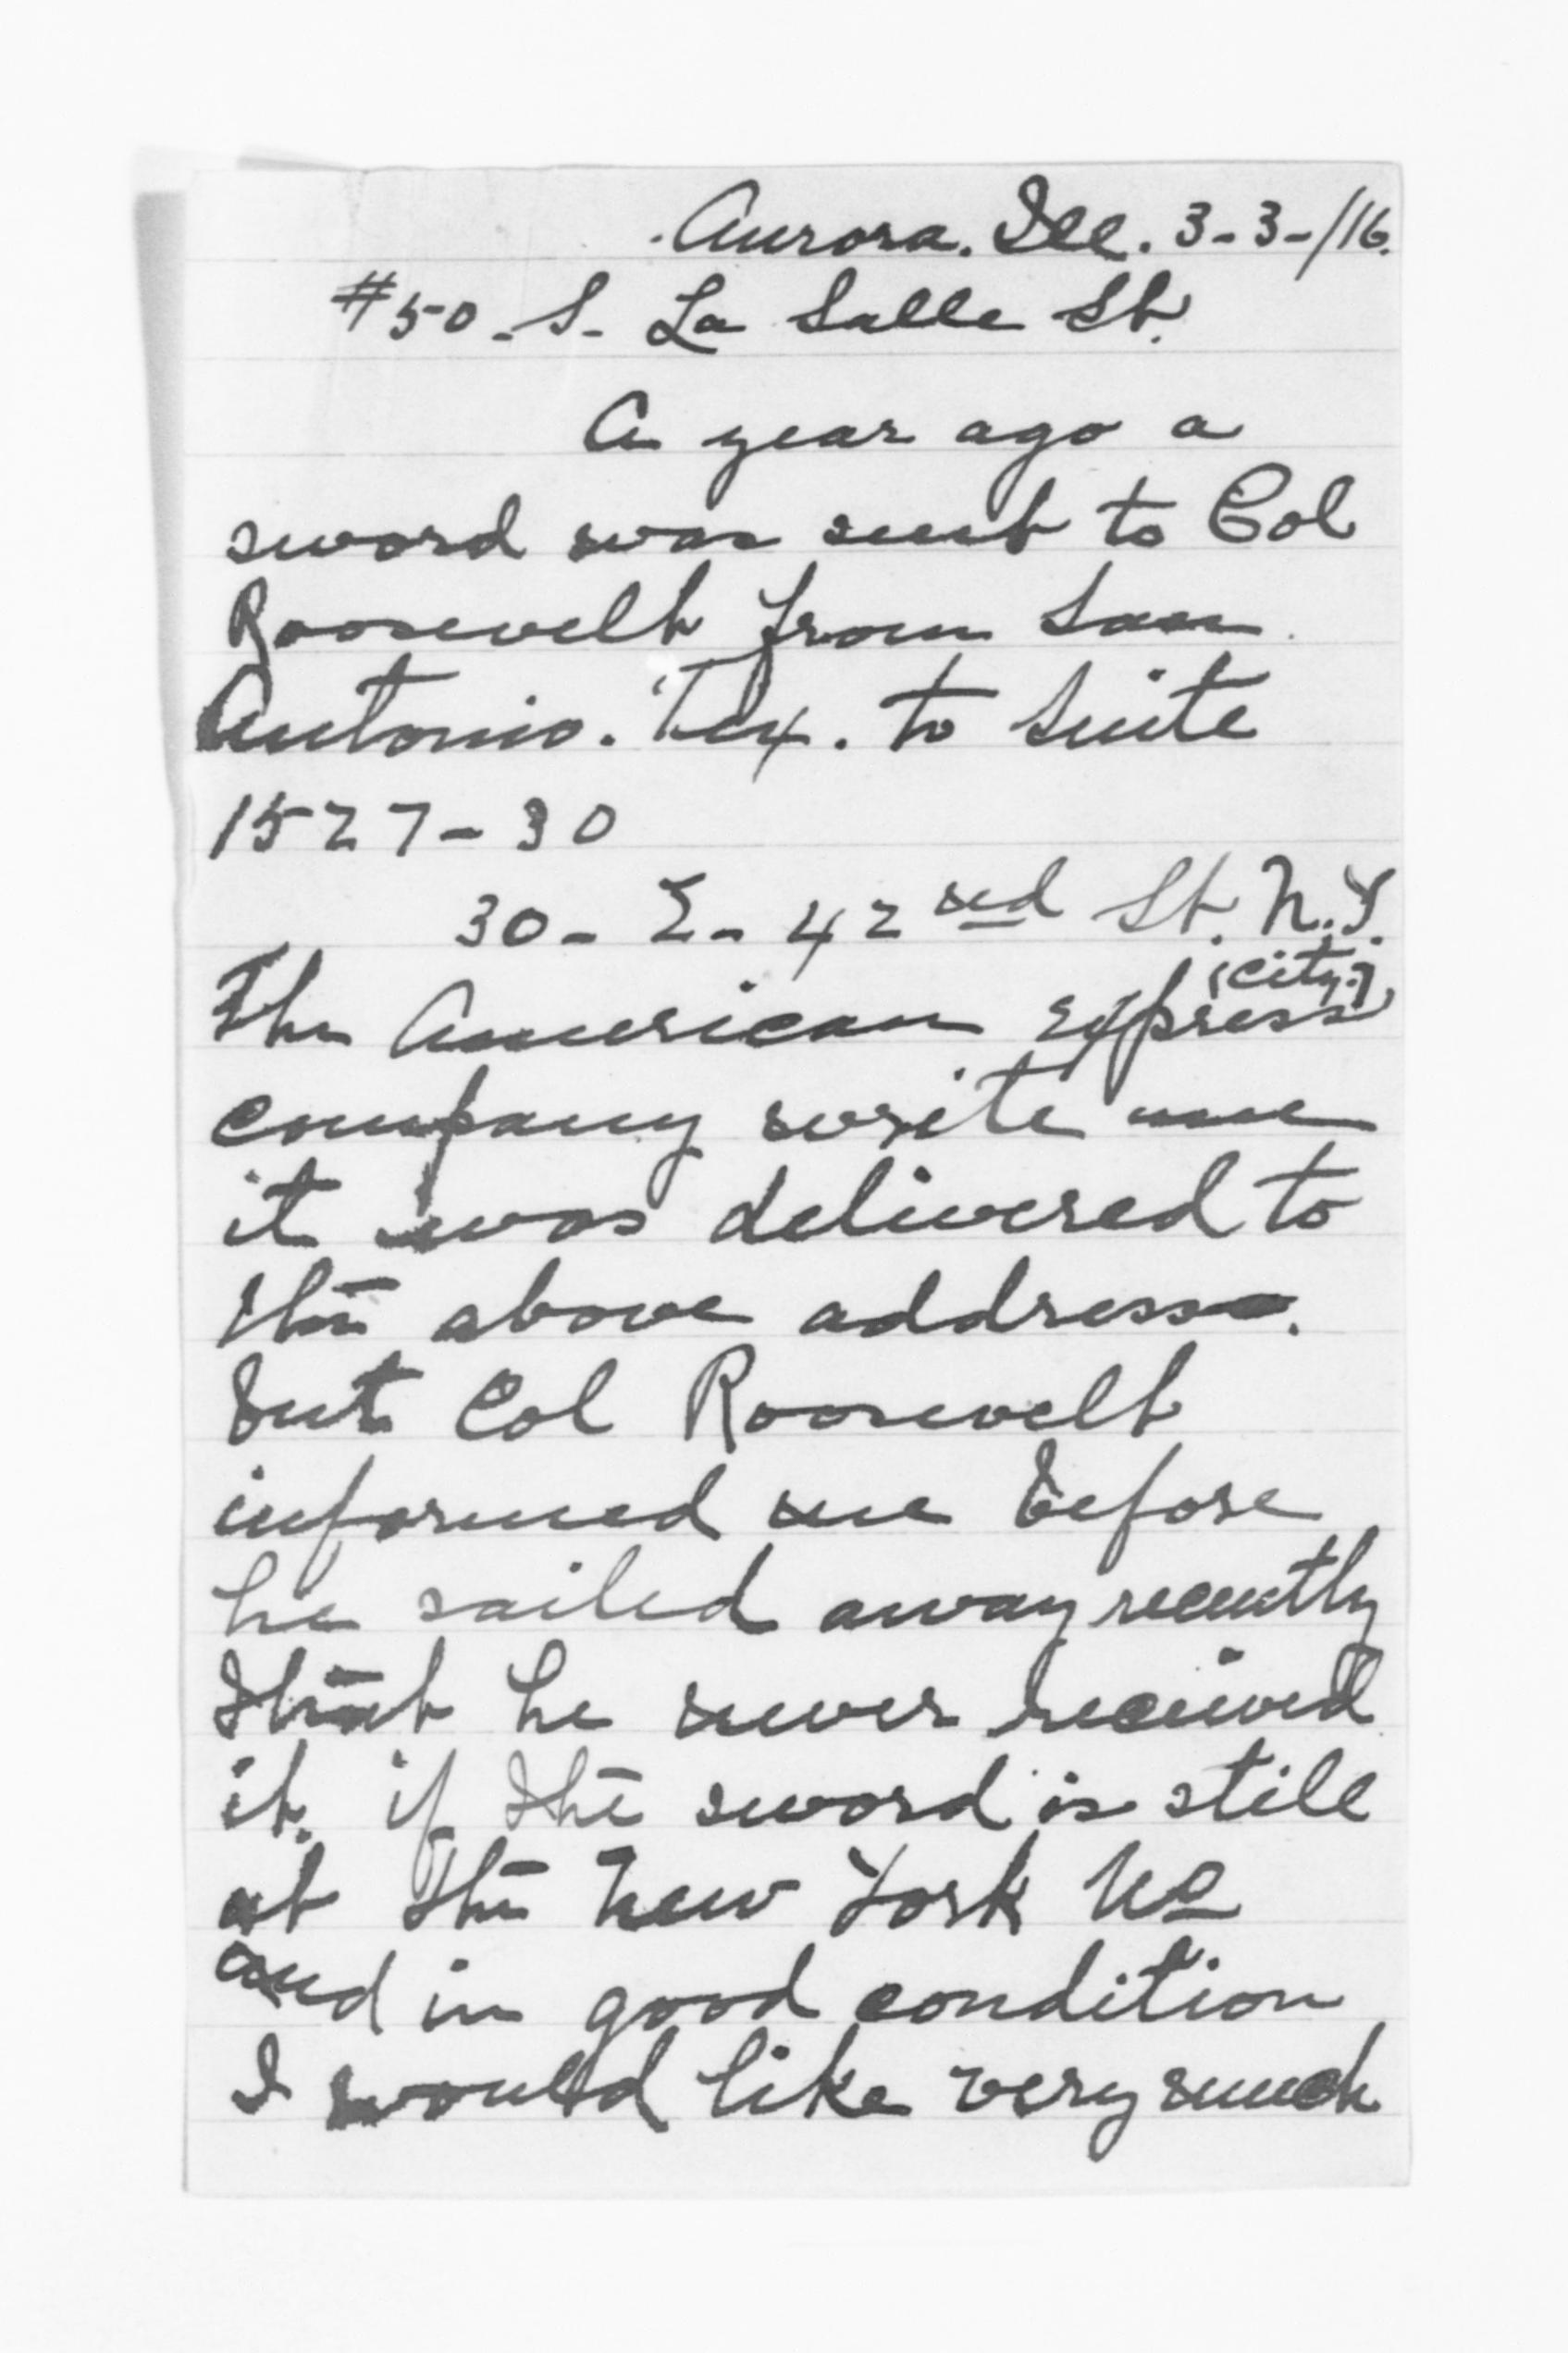 Aurora. Ill. 3-3-/16.
#50-S-La Salle St.
A year ago a
sword was sent to Col
Roosevelt from San
Antonio. Tex. to Suite
1527-30
30-E-42nd St. N.Y.
(city.)
The American express
company write me
it was delivered to
the above address.
but Col Roosevelt
informed me before
he sailed away recently
that he never received
it. if the sword is still
at the New York No
and in good condition
I would like very much